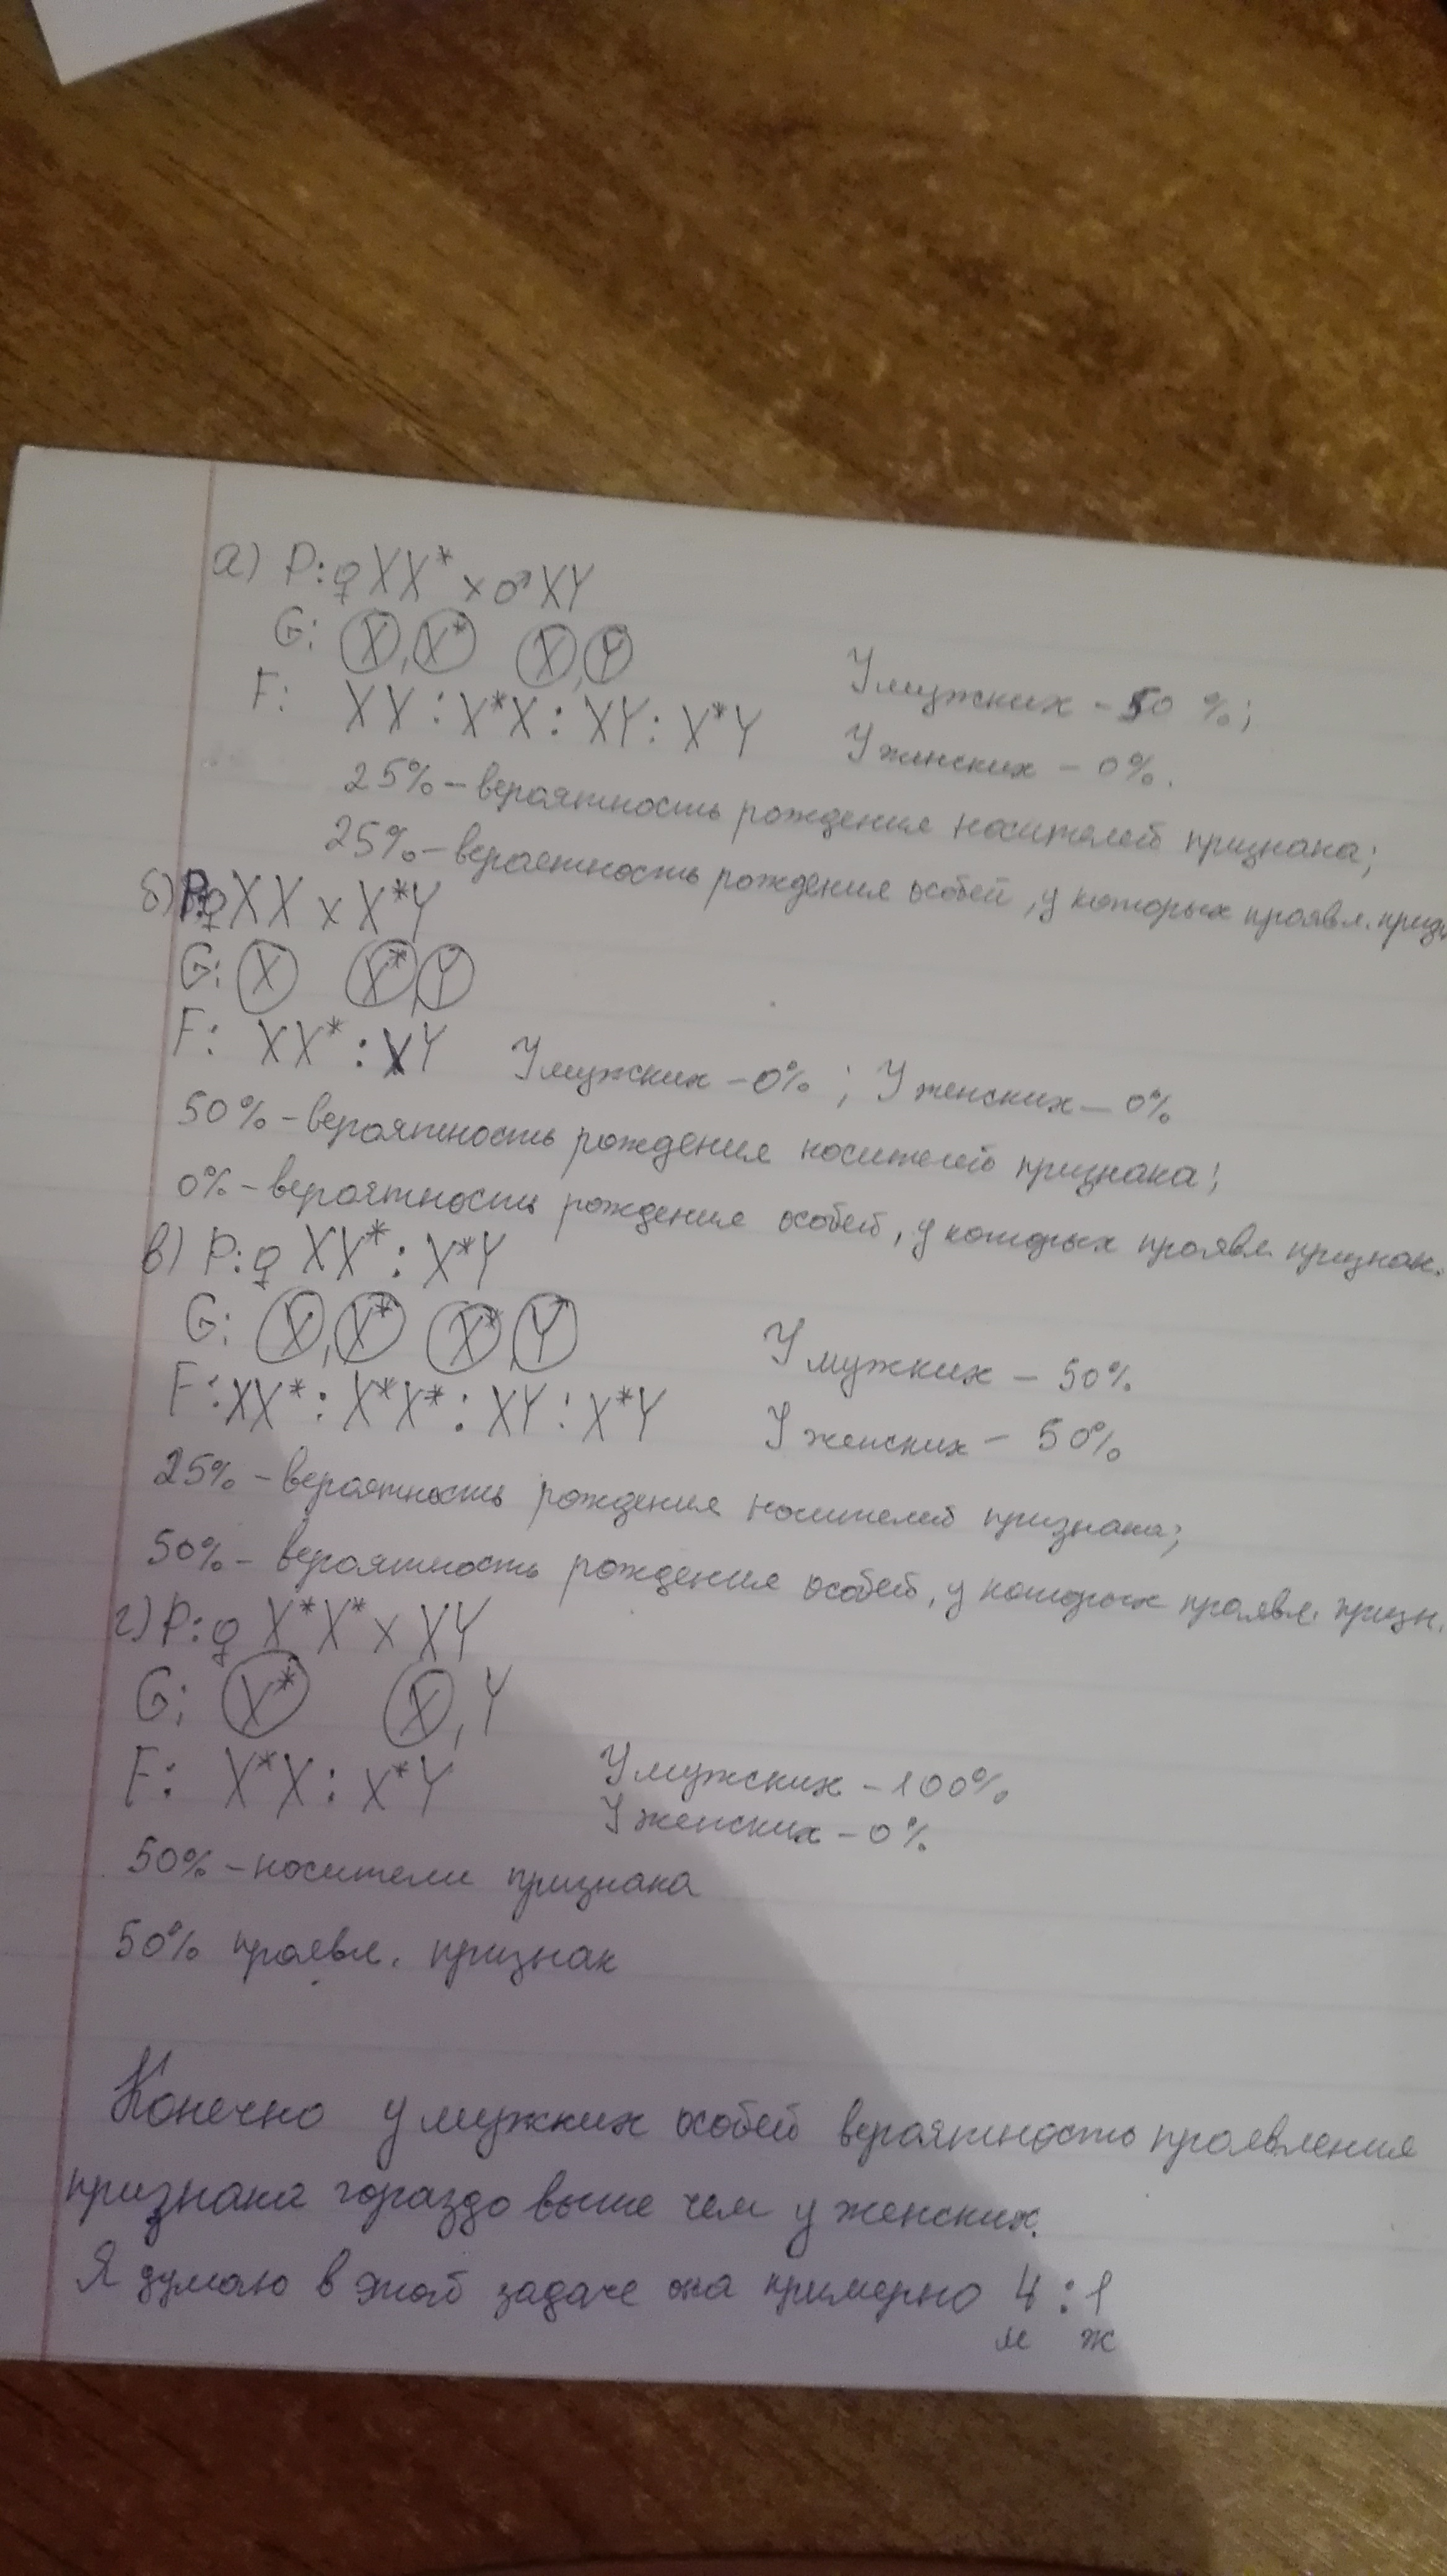 а) P: ♀ XX* x ♂ XY
G: X, X* X, Y
F: XX : X*X : XY : X*Y
У мужских - 50 %;
У женских - 0%.
25% - вероятность рождения носителей признака;
25% - вероятность рождения особей, у которых проявл. призн
б) P: ♀ XX x X*Y
G: X X*, Y
F: XX* : XY У мужских - 0% ; У женских - 0%
50% - вероятность рождения носителей признака;
0% - вероятность рождения особей, у которых проявл. признак.
в) P: ♀ XX* : X*Y
G: X, X* X*, Y
F: XX* : X*X* : XY : X*Y
У мужских - 50%
У женских - 50%
25% - вероятность рождения носителей признака;
50% - вероятность рождения особей, у которых проявл. призн.
г) P: ♀ X*X* x XY
G: X* X, Y
F: X*X : X*Y
У мужских - 100%
У женских - 0%
50% - носители признака
50% проявл. признак
Конечно у мужских особей вероятность проявления
признака гораздо выше чем у женских.
Я думаю в этой задаче она примерно 4 : 1
м ж